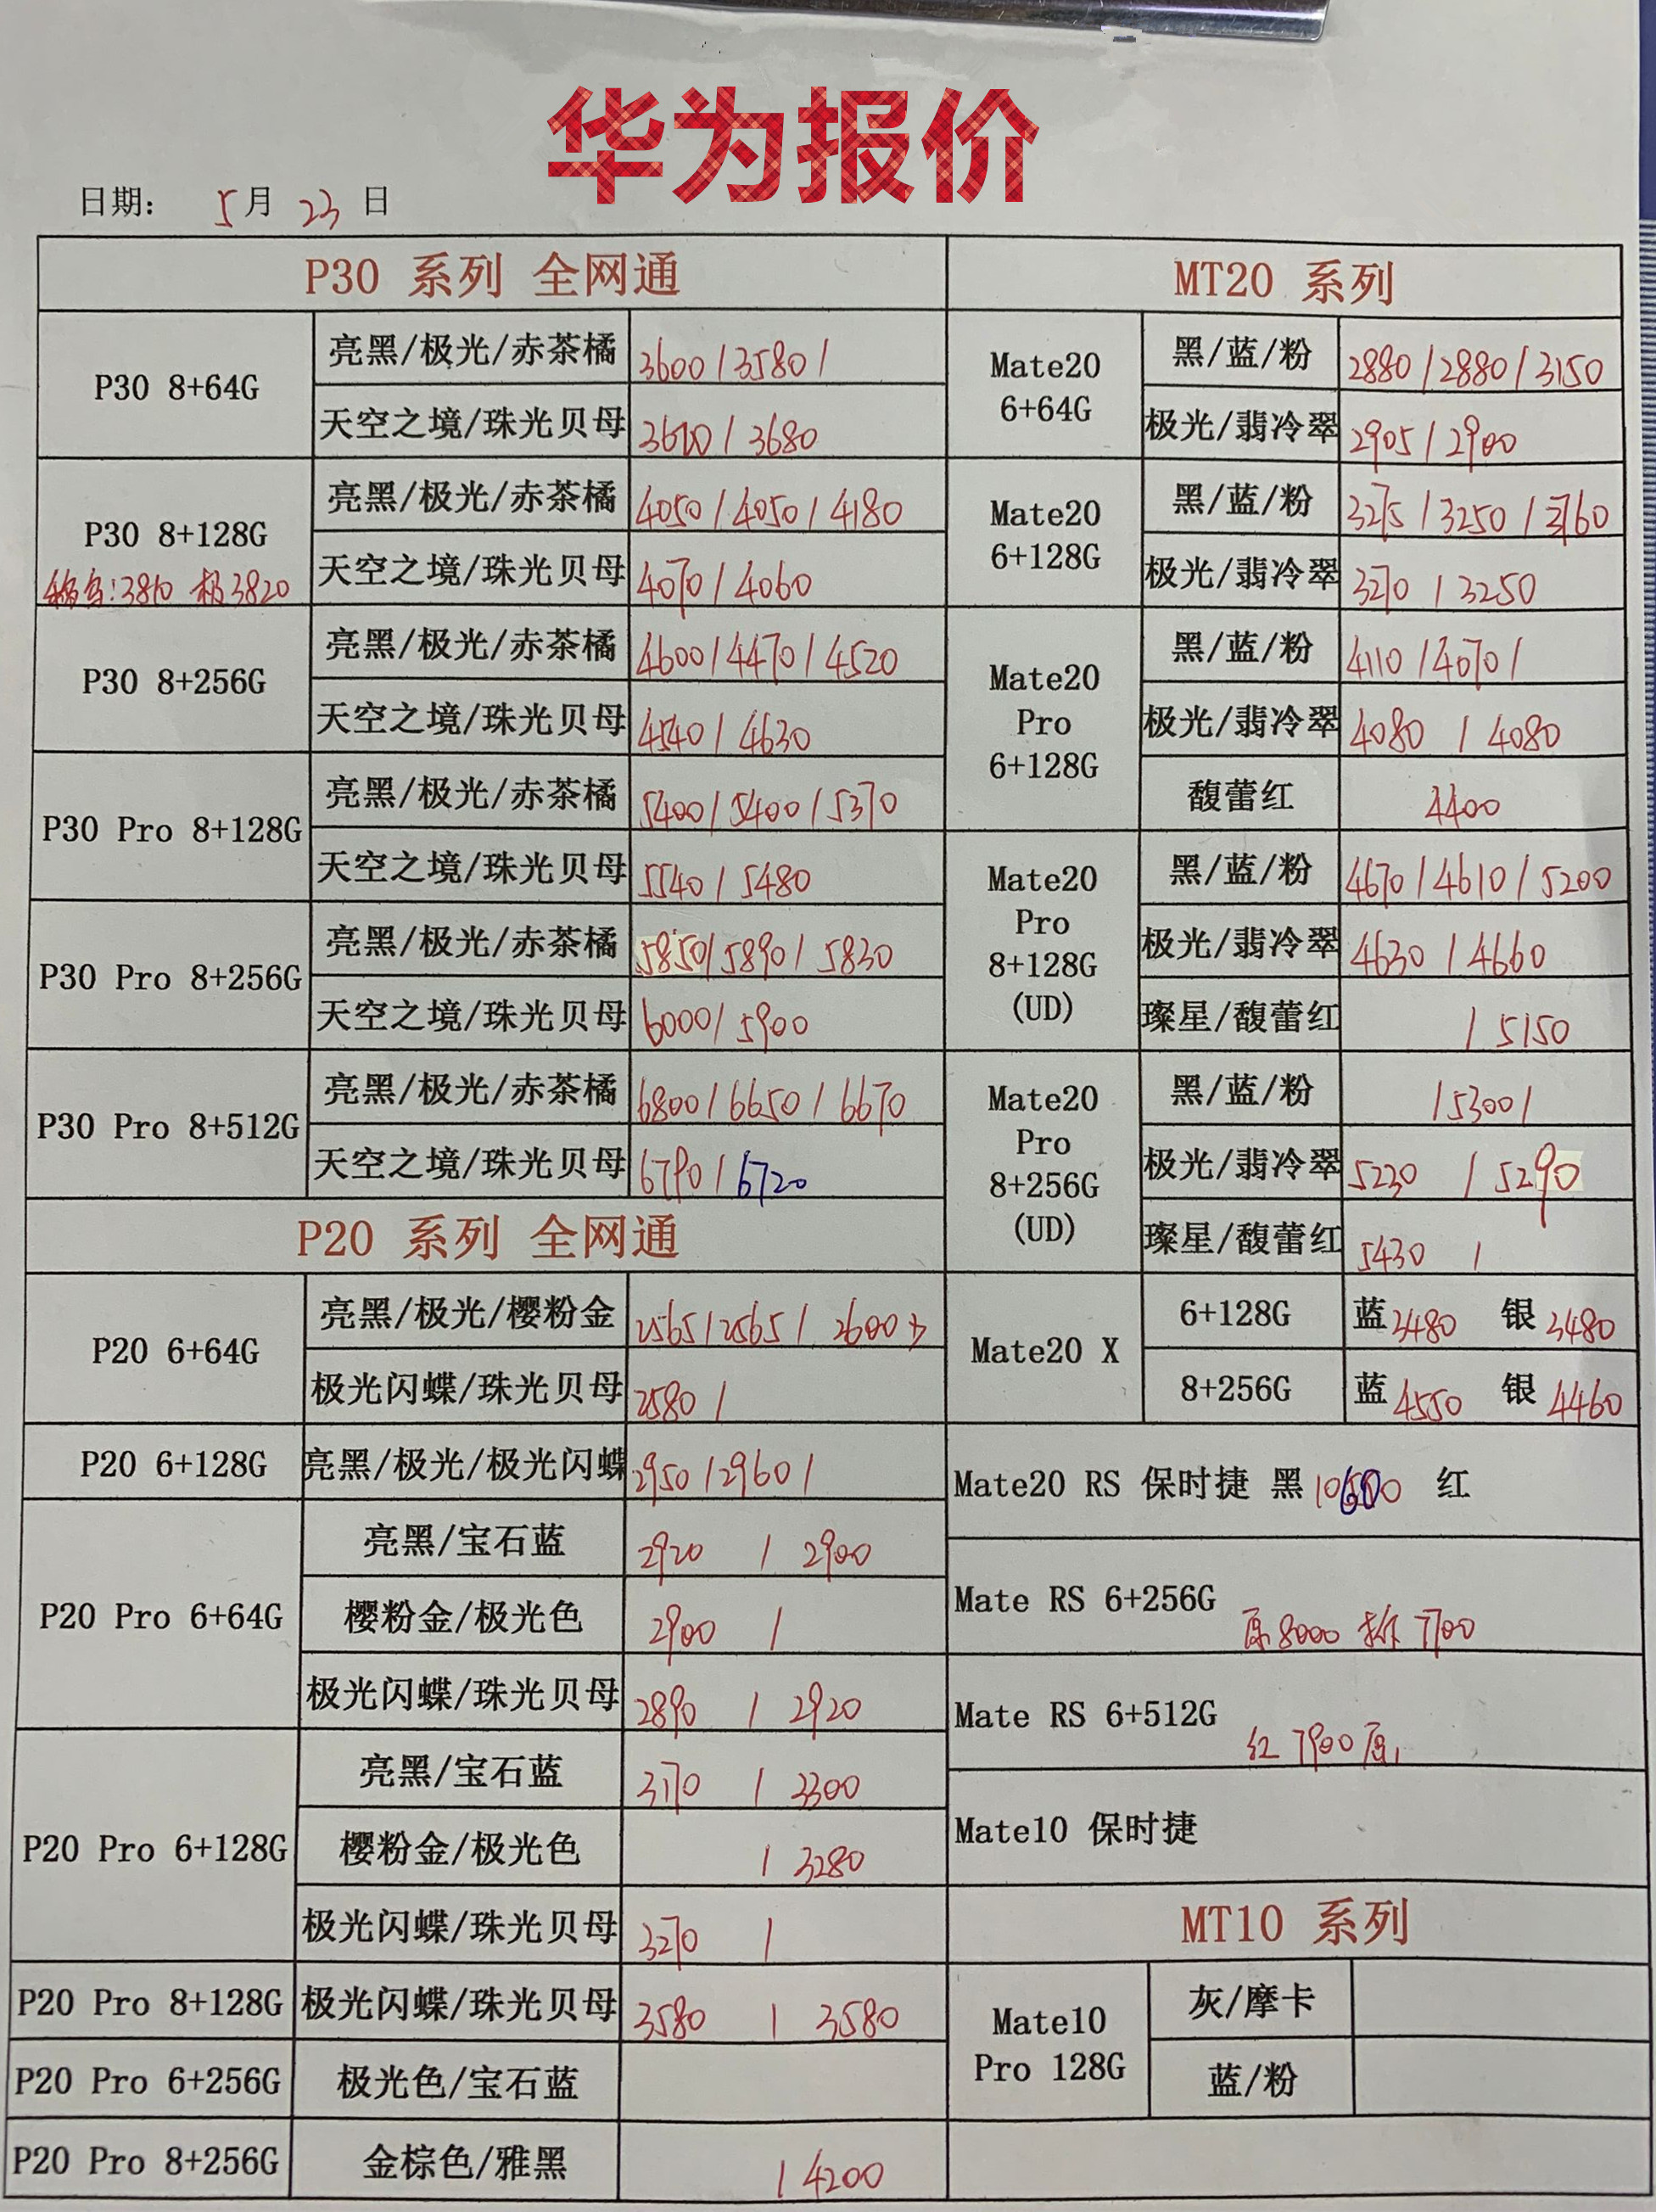 华为报价
日期： 5月 23 日
P30 系列 全网通
P30 8+64G
亮黑/极光/赤茶橘 3600/3580/
天空之境/珠光贝母 /3680
P30 8+128G
3810 极3820
亮黑/极光/赤茶橘 4050/4050/4180
天空之境/珠光贝母 4070/4060
P30 8+256G
亮黑/极光/赤茶橘 4600/4470/4520
天空之境/珠光贝母 4540/4630
P30 Pro 8+128G
亮黑/极光/赤茶橘 5400/5400/5370
天空之境/珠光贝母 5540/5480
P30 Pro 8+256G
亮黑/极光/赤茶橘 5850/5890/5830
天空之境/珠光贝母 6000/5900
P30 Pro 8+512G
亮黑/极光/赤茶橘 6800/6650/6670
天空之境/珠光贝母 6790/6720
P20 系列 全网通
P20 6+64G
亮黑/极光/樱粉金 2565/2565/2600
极光闪蝶/珠光贝母 2580/
P20 6+128G
亮黑/极光/极光闪蝶 2950/2960/
P20 Pro 6+64G
亮黑/宝石蓝 2920 / 2900
樱粉金/极光色 2900 /
极光闪蝶/珠光贝母 2890 / 2920
P20 Pro 6+128G
亮黑/宝石蓝 3170 / 3300
樱粉金/极光色 / 3280
极光闪蝶/珠光贝母 3270 /
P20 Pro 8+128G
极光闪蝶/珠光贝母 3580 / 3580
P20 Pro 6+256G
极光色/宝石蓝
P20 Pro 8+256G
金棕色/雅黑 / 4200
MT20 系列
Mate20
6+64G
黑/蓝/粉 2880/2880/3150
极光/翡冷翠 2905/2900
Mate20
6+128G
黑/蓝/粉 3275/3250/
极光/翡冷翠 3270 / 3250
Mate20
Pro
6+128G
黑/蓝/粉 4110/4070/
极光/翡冷翠 4080 / 4080
馥蕾红 4400
Mate20
Pro
8+128G
(UD)
黑/蓝/粉 4670/4610/5200
极光/翡冷翠 4630 / 4660
璨星/馥蕾红 / 5150
Mate20
Pro
8+256G
(UD)
黑/蓝/粉 /5300/
极光/翡冷翠 5230 / 5290
璨星/馥蕾红 5430 /
Mate20 X
6+128G 蓝 3480 银 3480
8+256G 蓝 4550 银 4460
Mate20 RS 保时捷 黑 红
Mate RS 6+256G 原8000 拆7700
Mate RS 6+512G 红 7900原
Mate10 保时捷
MT10 系列
Mate10
Pro 128G
灰/摩卡
蓝/粉